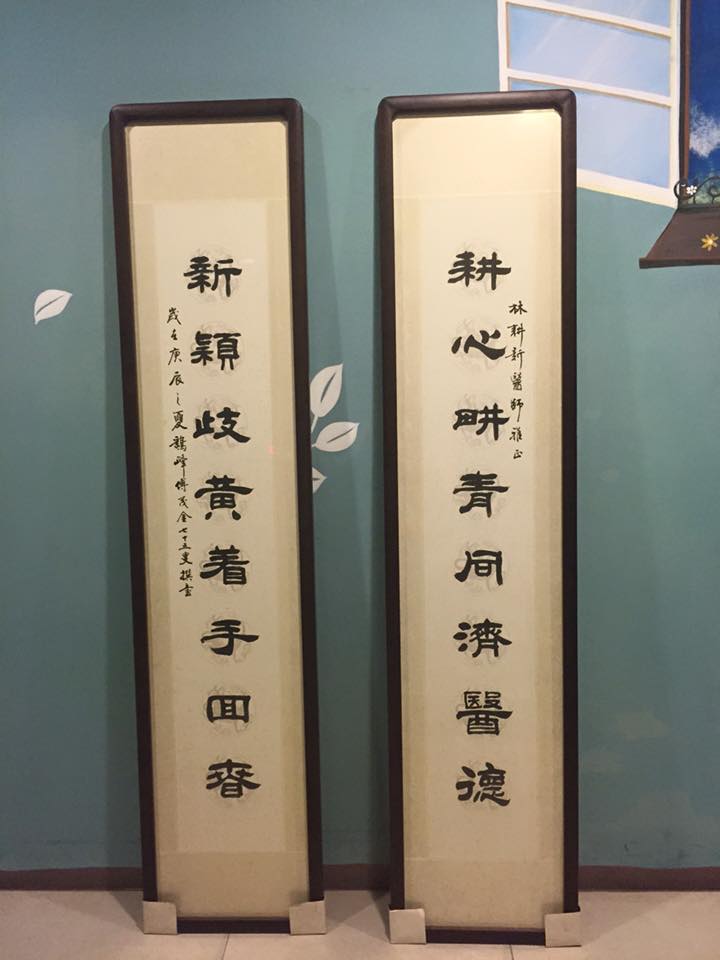 林耕新醫師雅正
耕心畊青同濟醫德
新穎歧黃着手回春
歲在庚辰之夏峰傅茂金七十五叟撰書